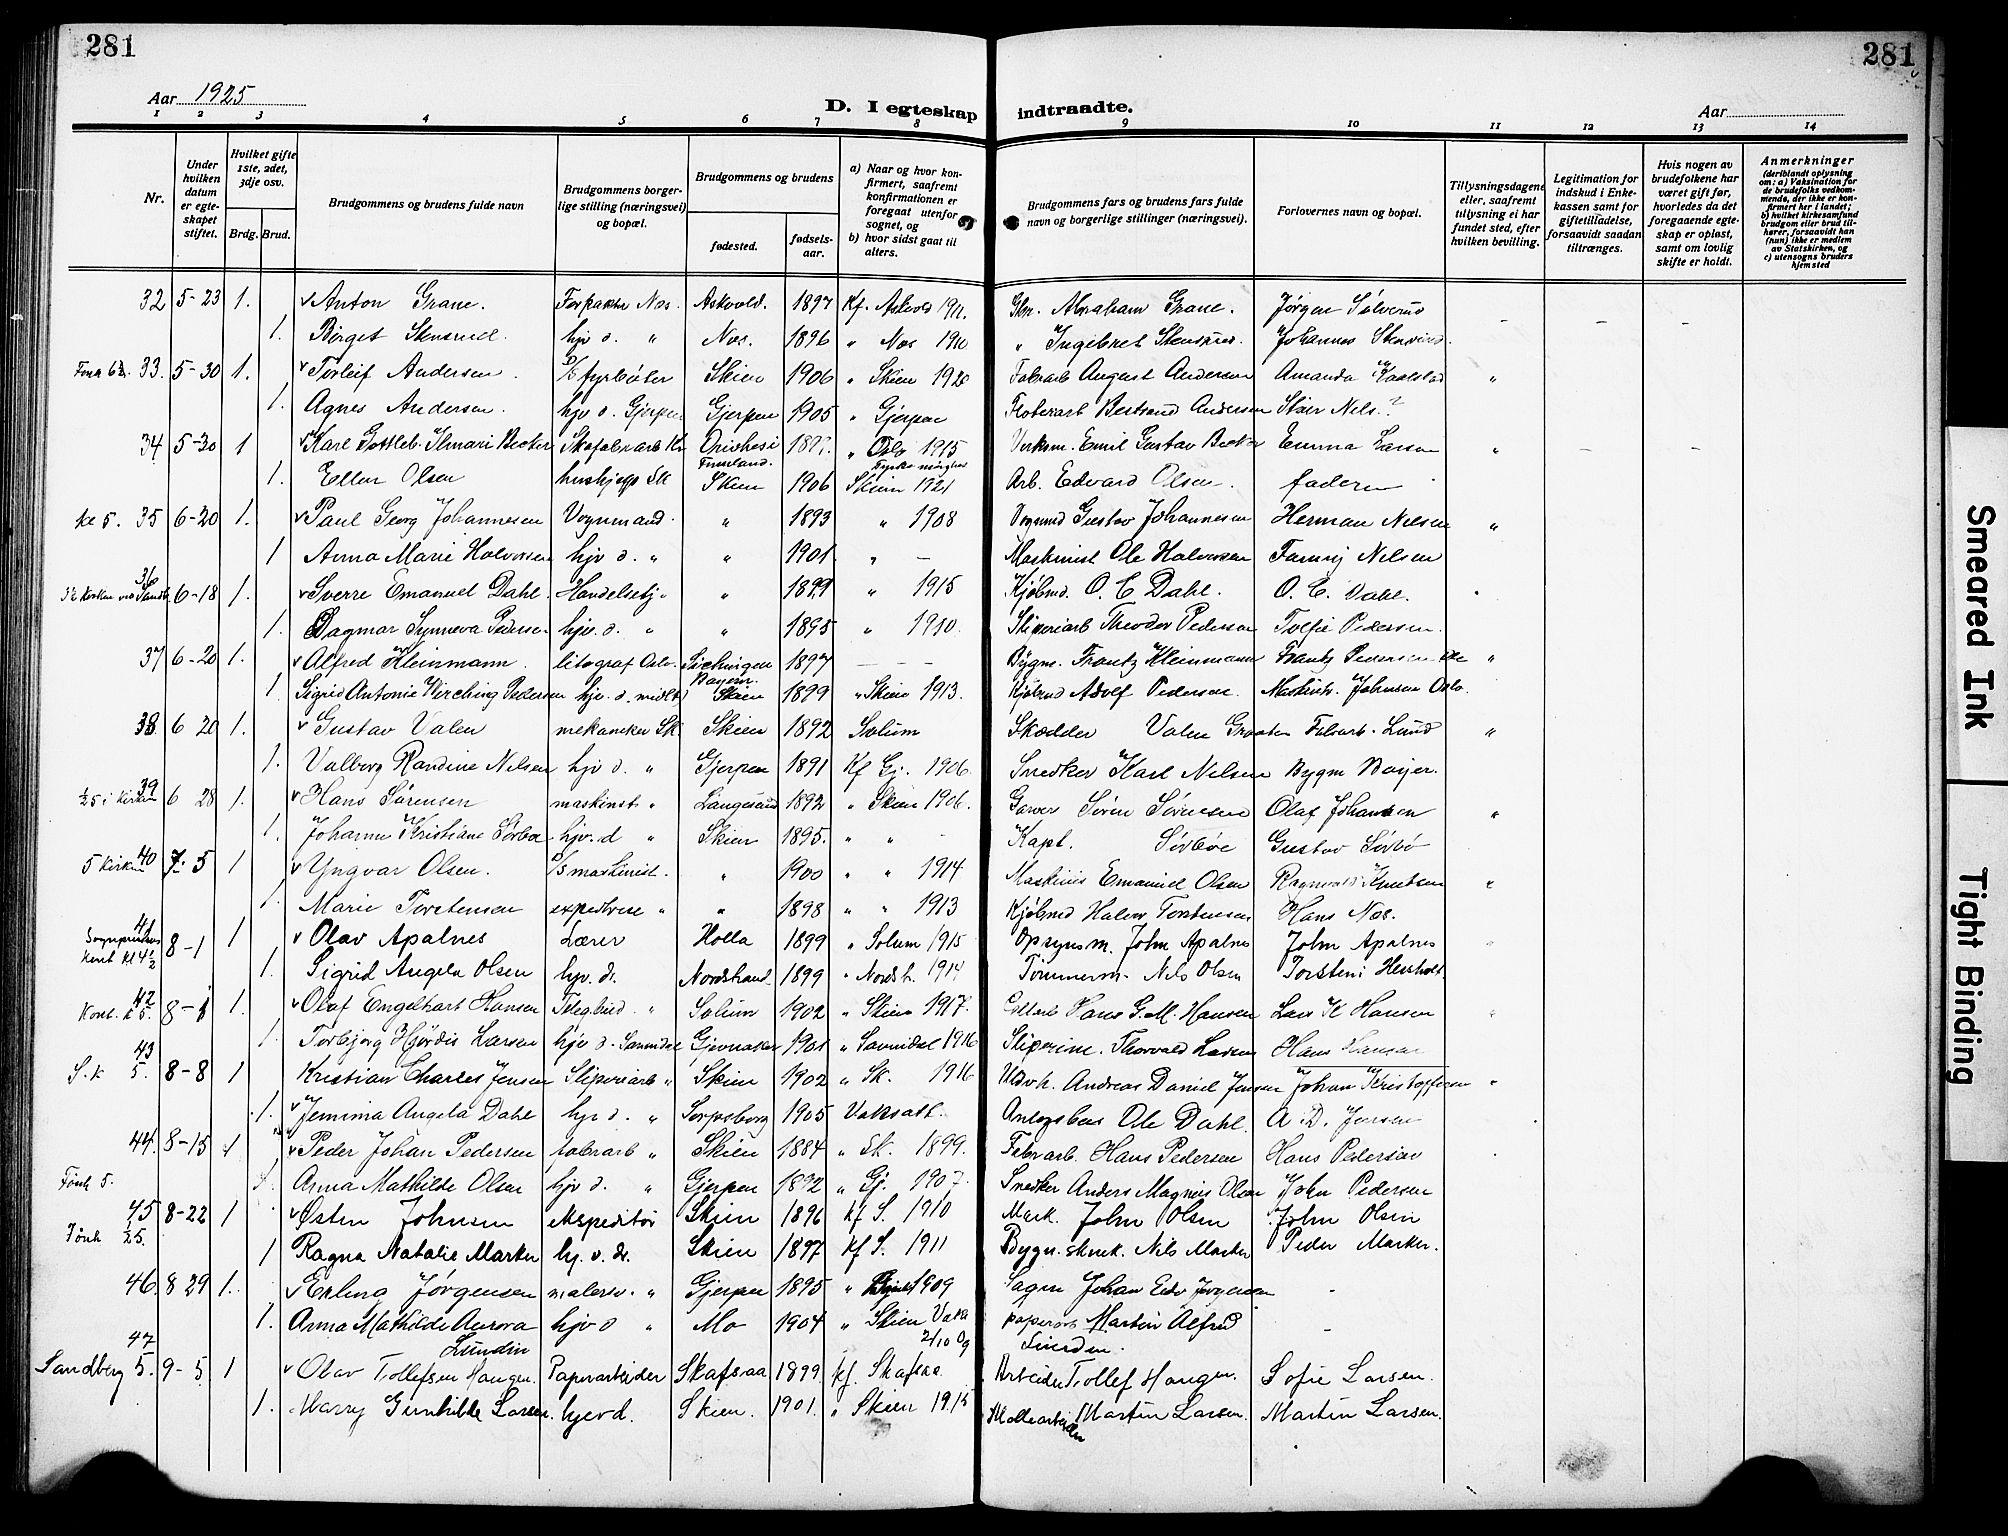 281
281
Aar 1925
D. I egteskap indtraadte.
Aar
1 2 3 4 5 6 7 8 9 10 11 12 13 14
Nr.
Under hvilken datum er egteskapet stiftet.
Hvilket gifte 1ste, 2det, 3dje osv.
Brdg. Brud.
Brudgommens og brudens fulde navn
Brudgommens borgerlige stilling (næringsvei) og bopæl.
Brudgommens og brudens
fødested.
fødselsaar.
a) Naar og hvor konfirmert, saafremt konfirmationen er foregaat utenfor sognet, og
b) hvor sidst gaat til alters.
Brudgommens fars og brudens fars fulde navn og borgerlige stillinger (næringsvei).
Forlovernes navn og bopæl.
Tillysningsdagene eller, saafremt tillysning ei har fundet sted, efter hvilken bevilling.
Legitimation for indskud i Enkekassen samt for giftetilladelse, forsaavidt saadan tiltrænges.
Hvis nogen av brudefolkene har været gift før, hvorledes da det foregaaende egteskap er opløst, samt om lovlig skifte er holdt.
Anmerkninger (deriblandt oplysning om: a) Vaksination for de brudefolks vedkommende, der ikke er konfirmert her i landet; b) hvilket kirkesamfund brudgom eller brud tilhører, forsaavidt han (hun) ikke er medlem av Statskirken, og c) utensogns bruders hjemsted
32 5-23 1. Anton Grane. Nes. Askvold. 1897 Kf. Askvold 1911. Abraham Grane. Jørgen Sølverud
1. Birget Stensrud. hjv d. " Nes. 1896 " Nes 1910 " Ingebret Stensrud. Johannes Stensrud.
33. 5-30 1. Torleif Andersen D/S fyrbøter Skien 1906 " Skien 1920 Fabrarb August Andersen Amanda Kaalstad "
1. Agnes Andersen. hjv d. Gjerpen Gjerpen 1905 " Gjerpen Bertrand Andersen Nils ?
34 5-30 1 Karl Gottleb Ilmari Becker Skofabrarb Kr Finnland. " Oslo 1915 Verksm. Emil Gustav Becker Emma Larsen "
1. Ellen Olsen Sk Skien 1906 Skien 1921 Arb. Edvard Olsen. faderen
kl 5. 35 6-20 1. Paul Georg Johannesen Vognmand " 1893 " 1908 Vognmd Gustav Johannesen Herman Nilsen "
1 Anna Marie Halvorsen hjv d. " " 1901 " - Maskinist Ole Halvorsen Fanny Nilsen
36 6-18 1. Sverre Emanuel Dahl. Handelsbtj " " 1899 " 1915 Kjøbmd. O. E. Dahl. O. E. Dahl.
1. Dagmar Synneva Pederse. hjv. d. " " 1895 " 1910. Sliperiarb Theodor Pedersen Tolfie Pedersen.
37 6-20 1. Alfred Kleinmann. litograf Oslo. Bayern. 1897 - - - Bygm. Frantz Kleinmann Frantz Pedersen "
1 Sigrid Antonie Kirching Pedersen hjv. d. midlt) Skien 1899 " Skien 1913. Kjøbmd Adolf Pedersen. Maskinh. Johnsen Oslo.
38 6 20 1. Gustav Valen mekaneker Sk. Skien 1892 Solum Skrædder Valen Fabrarb. Lund "
1. Valborg Randine Nilsen hjv d. " Gjerpen 1891 Kf Gj. 1906. Snedker Karl Nilsen Bygm Boijer.
39 1/2 5 i Kirken 6 28 1. Hans Sørensen maskinst. " Langesund 1892 " Skien 1906. Garver Søren Sørensen Olaf Johansen "
1. Johanne Kristiane Sørbøe hjv. d " Skien 1895. " " Kapt. Sørbøe Gustav Sørbø
40 5 Kirken 7-5 1 Yngvar Olsen. D/S maskinist. " 1900 " " 1914 Maskinis Emanuel Olsen Ragnvald Knutsen "
1. Marie Torstensen expeditrise " " 1898 " " 1913 Kjøbmd Halvor Torstensen Hans Nos.
41 8-1 1 Olav Apalnes Lærer Holla 1899 " Solum 1915 Opsynsm. John Apalnes John Apalnes
1. Sigrid Angela Olsen hjv. dr. Nordstrand. 1899 " Nordst. 1914 Tømmerm. Nils Olsen Torstein
42 8-1 1. Olaf Engelhart Hansen Telegbud. " Solum 1902 " Skien 1917. Hans G. M. Hansen Lars K Hansen
1. Torbjørg Hjørdis Larsen hjv d. Sannidal 1901 " Sannidal 1916 Thorvald Larsen Hans Hansen
S. k 43 5. 8-8 1 Kristian Charles Jensen Sliperiarb " Skien 1902 " Sk. 1916 Andreas Daniel Jensen Johan Kristoffersen "
1. Jemima Angela Dahl hjv d. " Sarpsborg 1905 Vaksatt. Ole Dahl. A. D. Jensen
44. 8-15 1 Peder Johan Pedersen fabrarb " Skien 1884 " Sk. 1899. Fabrarb. Hans Pedersen Hans Pedersen
1. Anna Mathilde Olsen hjv d. " Gjerpen 1892 " Gj. 1907. Snedker Anders Magnus Olsen John Pedersen
45 8-22 1 Østen Johnsen ekspeditør Skien 1896 kf S. 1910 Mask. John Olsen John Olsen
1 Ragna Natalie Marker hj. v. dr. Skien 1897 kf S. 1911 Nils Marker Peder Marker.
46. 8 29 1. Erling Jørgensen malersv. " Gjerpen 1895 " 1909 Johan Edv Jørgensen -
1. Anna Mathilde Aurora Lundin hjv d " Mo 1904 " Skien Vaks 2/10 09 paperarb Martin Alfred Lundin. -
47 Sandberg 5. 9-5 1 Olav Tollefsen Haugen. Paperarbeider Skafsaa 1899 kf. Skafsaa Arbeider Tollef Haugen. Sofie Larsen.
1. Marry Gunhilde Larsen. hjevd. Skien. 1901. " Skien 1915 Møllearbeider Martin Larsen. Martin Larsen.
Smeared Ink
Tight Binding